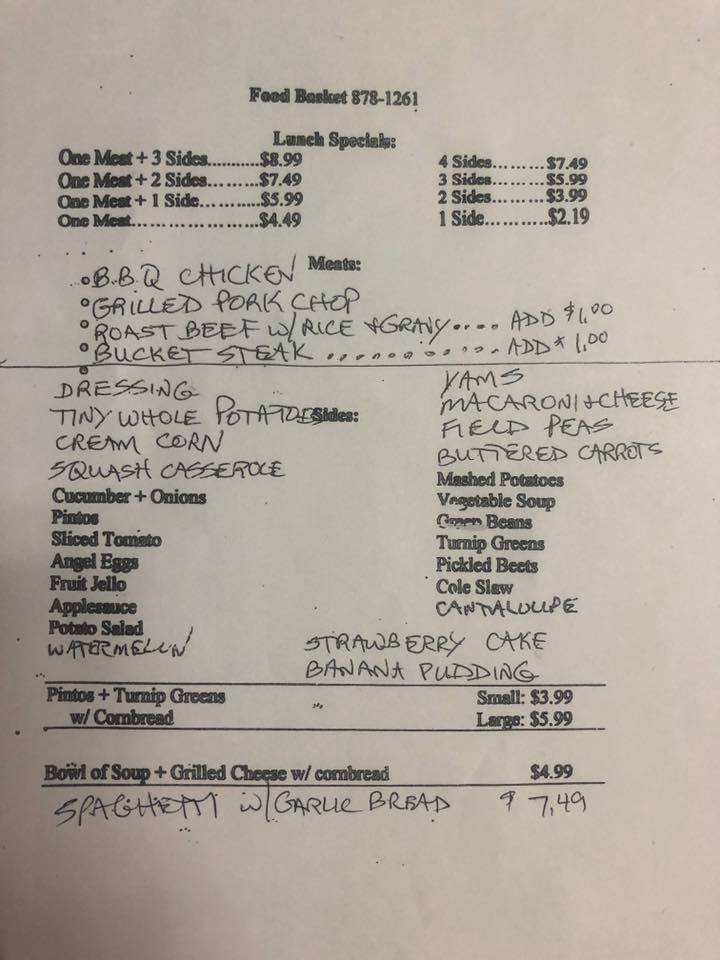 Food Basket 878-1261
Lunch Specials:
One Meat + 3 Sides...........$8.99
One Meat + 2 Sides..........$7.49
One Meat + 1 Side............$5.99
One Meat........................$4.49
4 Sides.........$7.49
3 Sides.........$5.99
2 Sides.........$3.99
1 Side...........$2.19
Meats:
B.B.Q CHICKEN
GRILLED PORK CHOP
ROAST BEEF W/RICE + GRAVY.... ADD $1.00
BUCKET STEAK ............ ADD $1.00
Sides:
DRESSING
TINY WHOLE POTATOES
CREAM CORN
SQUASH CASSEROLE
Cucumber + Onions
Pintos
Sliced Tomato
Angel Eggs
Fruit Jello
Applesauce
Potato Salad
WATERMELUN
YAMS
MACARONI + CHEESE
FIELD PEAS
BUTTERED CARROTS
Mashed Potatoes
Vegetable Soup
Green Beans
Turnip Greens
Pickled Beets
Cole Slaw
CANTALOUPE
STRAWBERRY CAKE
BANANA PUDDING
Pintos + Turnip Greens Small: $3.99
w/ Cornbread Large: $5.99
Bowl of Soup + Grilled Cheese w/ cornbread $4.99
SPAGHETTI W/GARLIC BREAD $7.49